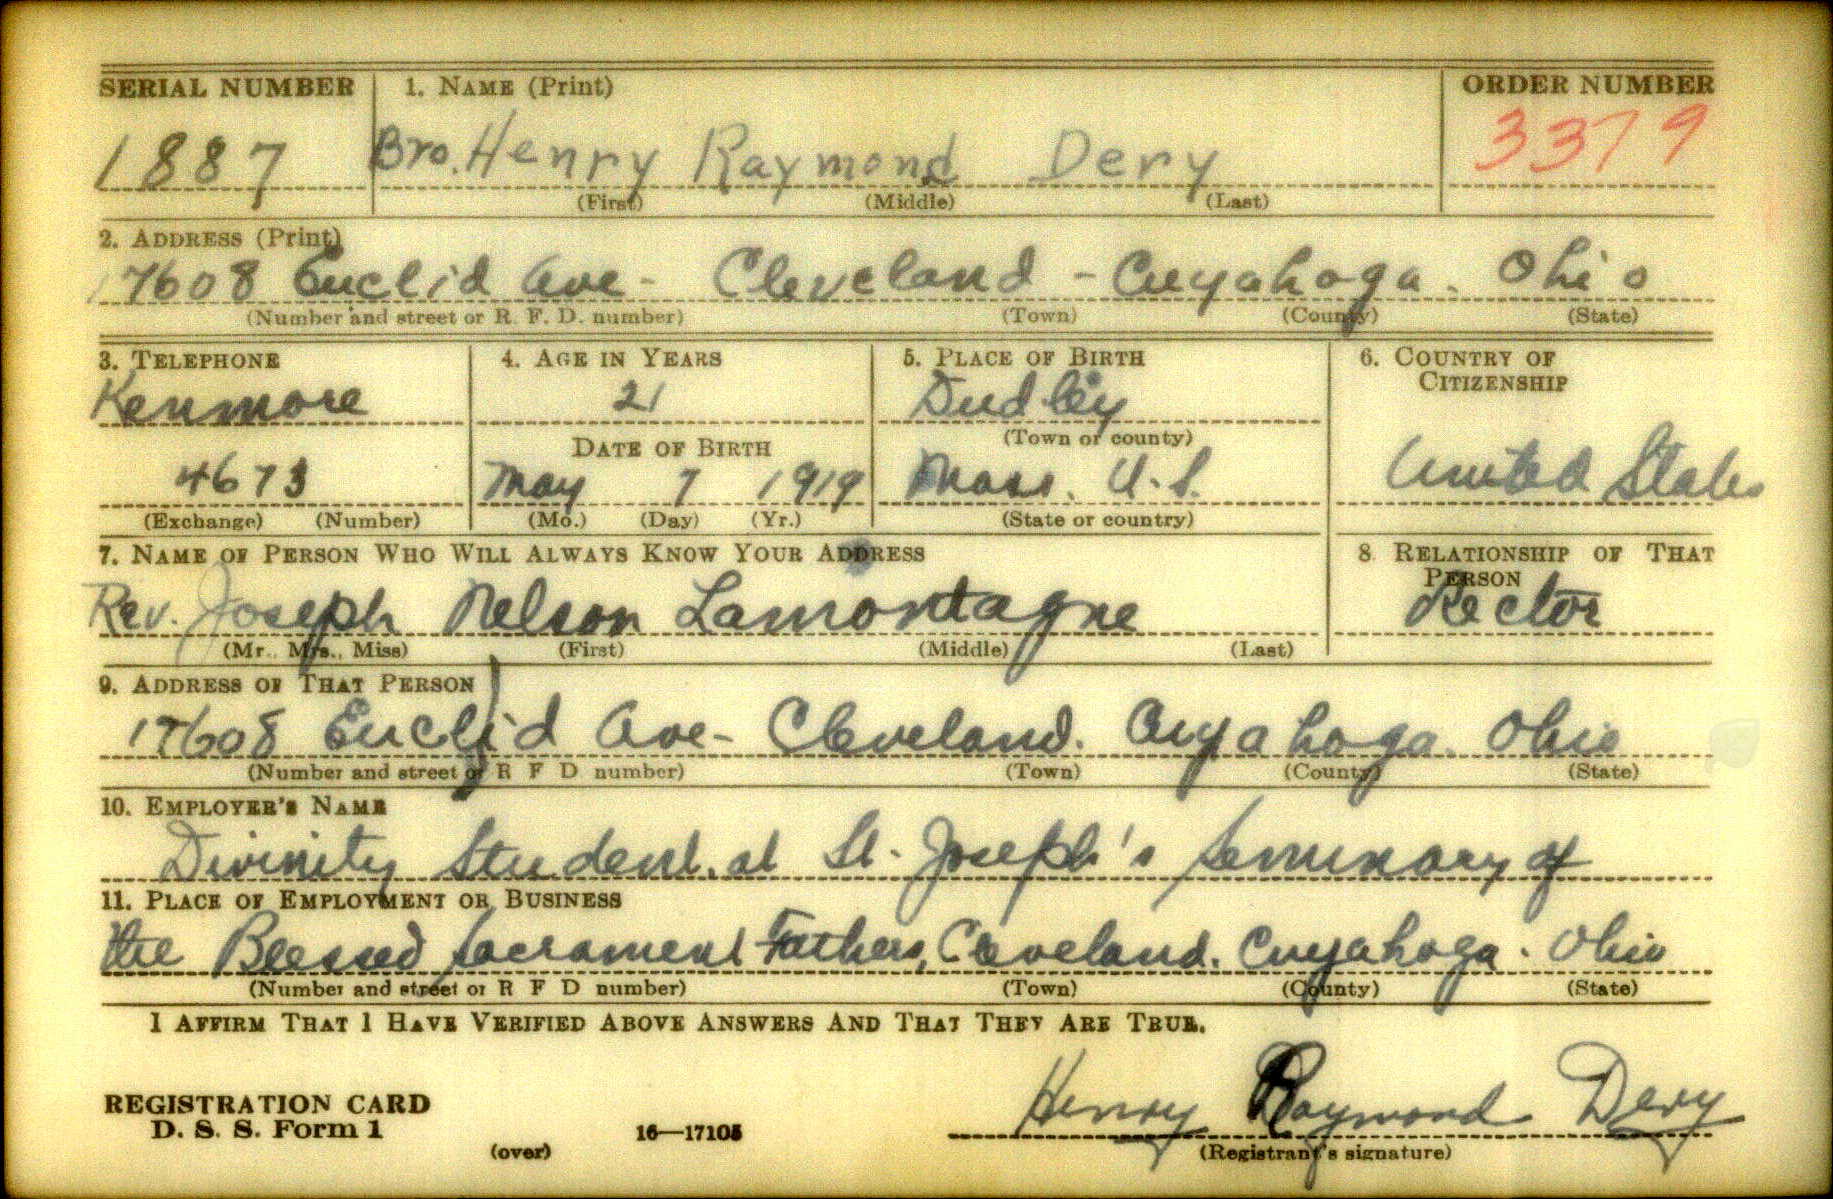 SERIAL NUMBER 1. NAME (Print) ORDER NUMBER
1887 Bro. Henry Raymond Dery 3379
(First) (Middle) (Last)
2. ADDRESS (Print)
17608 Euclid Ave - Cleveland - Cuyahoga. Ohio
(Number and street or R. F. D. number) (Town) (County) (State)
3. TELEPHONE 4. AGE IN YEARS 5. PLACE OF BIRTH 6. COUNTRY OF
CITIZENSHIP
Kenmore 21 Dudley
DATE OF BIRTH (Town or county)
4673 May 7 1919 Mass. U.S. United States
(Exchange) (Number) (Mo.) (Day) (Yr.) (State or country)
7. NAME OF PERSON WHO WILL ALWAYS KNOW YOUR ADDRESS 8. RELATIONSHIP OF THAT
PERSON
Rev. Joseph Nelson Lamontagne Rector
(Mr., Mrs., Miss) (First) (Middle) (Last)
9. ADDRESS OF THAT PERSON
17608 Euclid Ave - Cleveland. Cuyahoga. Ohio
(Number and street or R F D number) (Town) (County) (State)
10. EMPLOYER'S NAME
Divinity Student. at St. Joseph's Seminary of
11. PLACE OF EMPLOYMENT OR BUSINESS
the Blessed Sacrament Fathers, Cleveland. Cuyahoga. Ohio
(Number and street or R F D number) (Town) (County) (State)
I AFFIRM THAT I HAVE VERIFIED ABOVE ANSWERS AND THAT THEY ARE TRUE.
Henry Raymond Dery
REGISTRATION CARD
D. S. S. Form 1 16—17105
(over) (Registrant's signature)